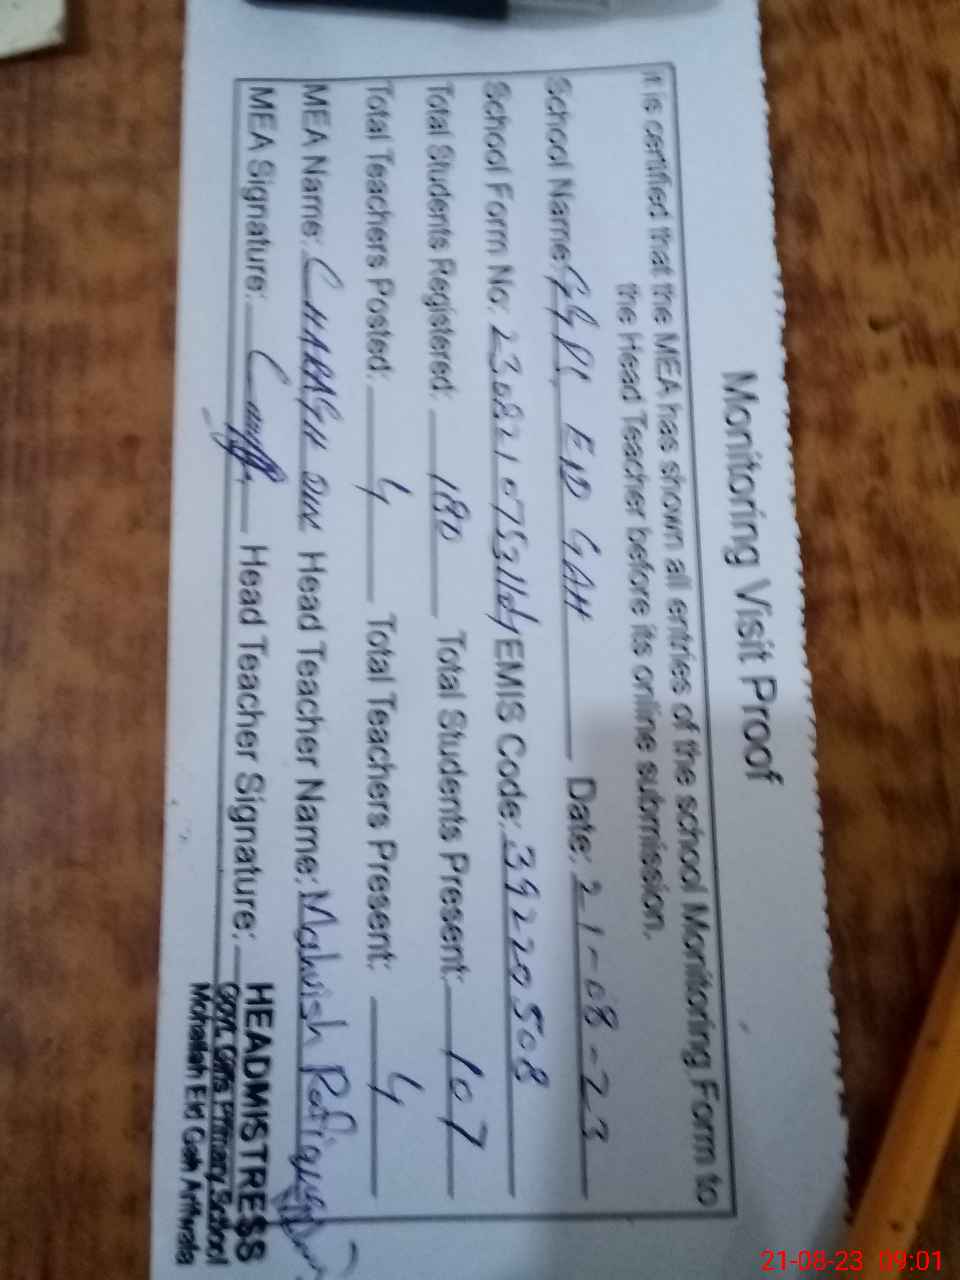 Monitoring Visit Proof
It is certified that the MEA has shown all entries of the school Monitoring Form to
the Head Teacher before its online submission.
School Name: GGPS EID GAH Date: 21-08-23
School Form No: EMIS Code: 39220508
Total Students Registered: 180 Total Students Present: 107
Total Teachers Posted: 4 Total Teachers Present: 4
MEA Name: Head Teacher Name: Mahvish Rafique
MEA Signature: Head Teacher Signature:
HEADMISTRESS
Govt. Girls Primary School
Mohallah Eid Gah Arifwala
21-08-23 09:01